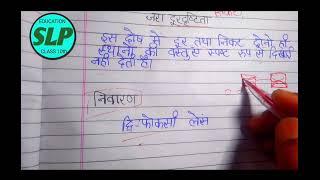 EDUCATION
SLP
CLASS 10th
जरा दूरदृष्टिता
इस दोष में दूर तथा निकट दोनों ही
स्थानों की वस्तुएं स्पष्ट रूप से दिखाई
नहीं देती है।
निवारण
द्वि-फोकसी लेंस